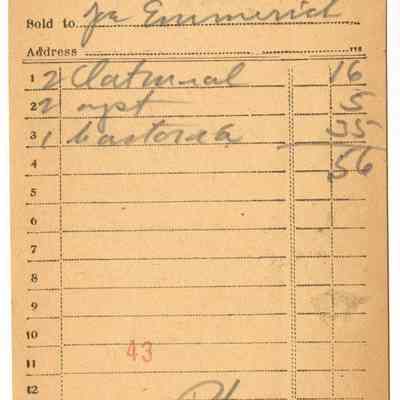 Sold to Jn Emmerich
Address
1 2 Oatmeal 16
2 2 yst 5
3 1 Castoria 35
4 56
5
6
7
8
9
10
43
11
12